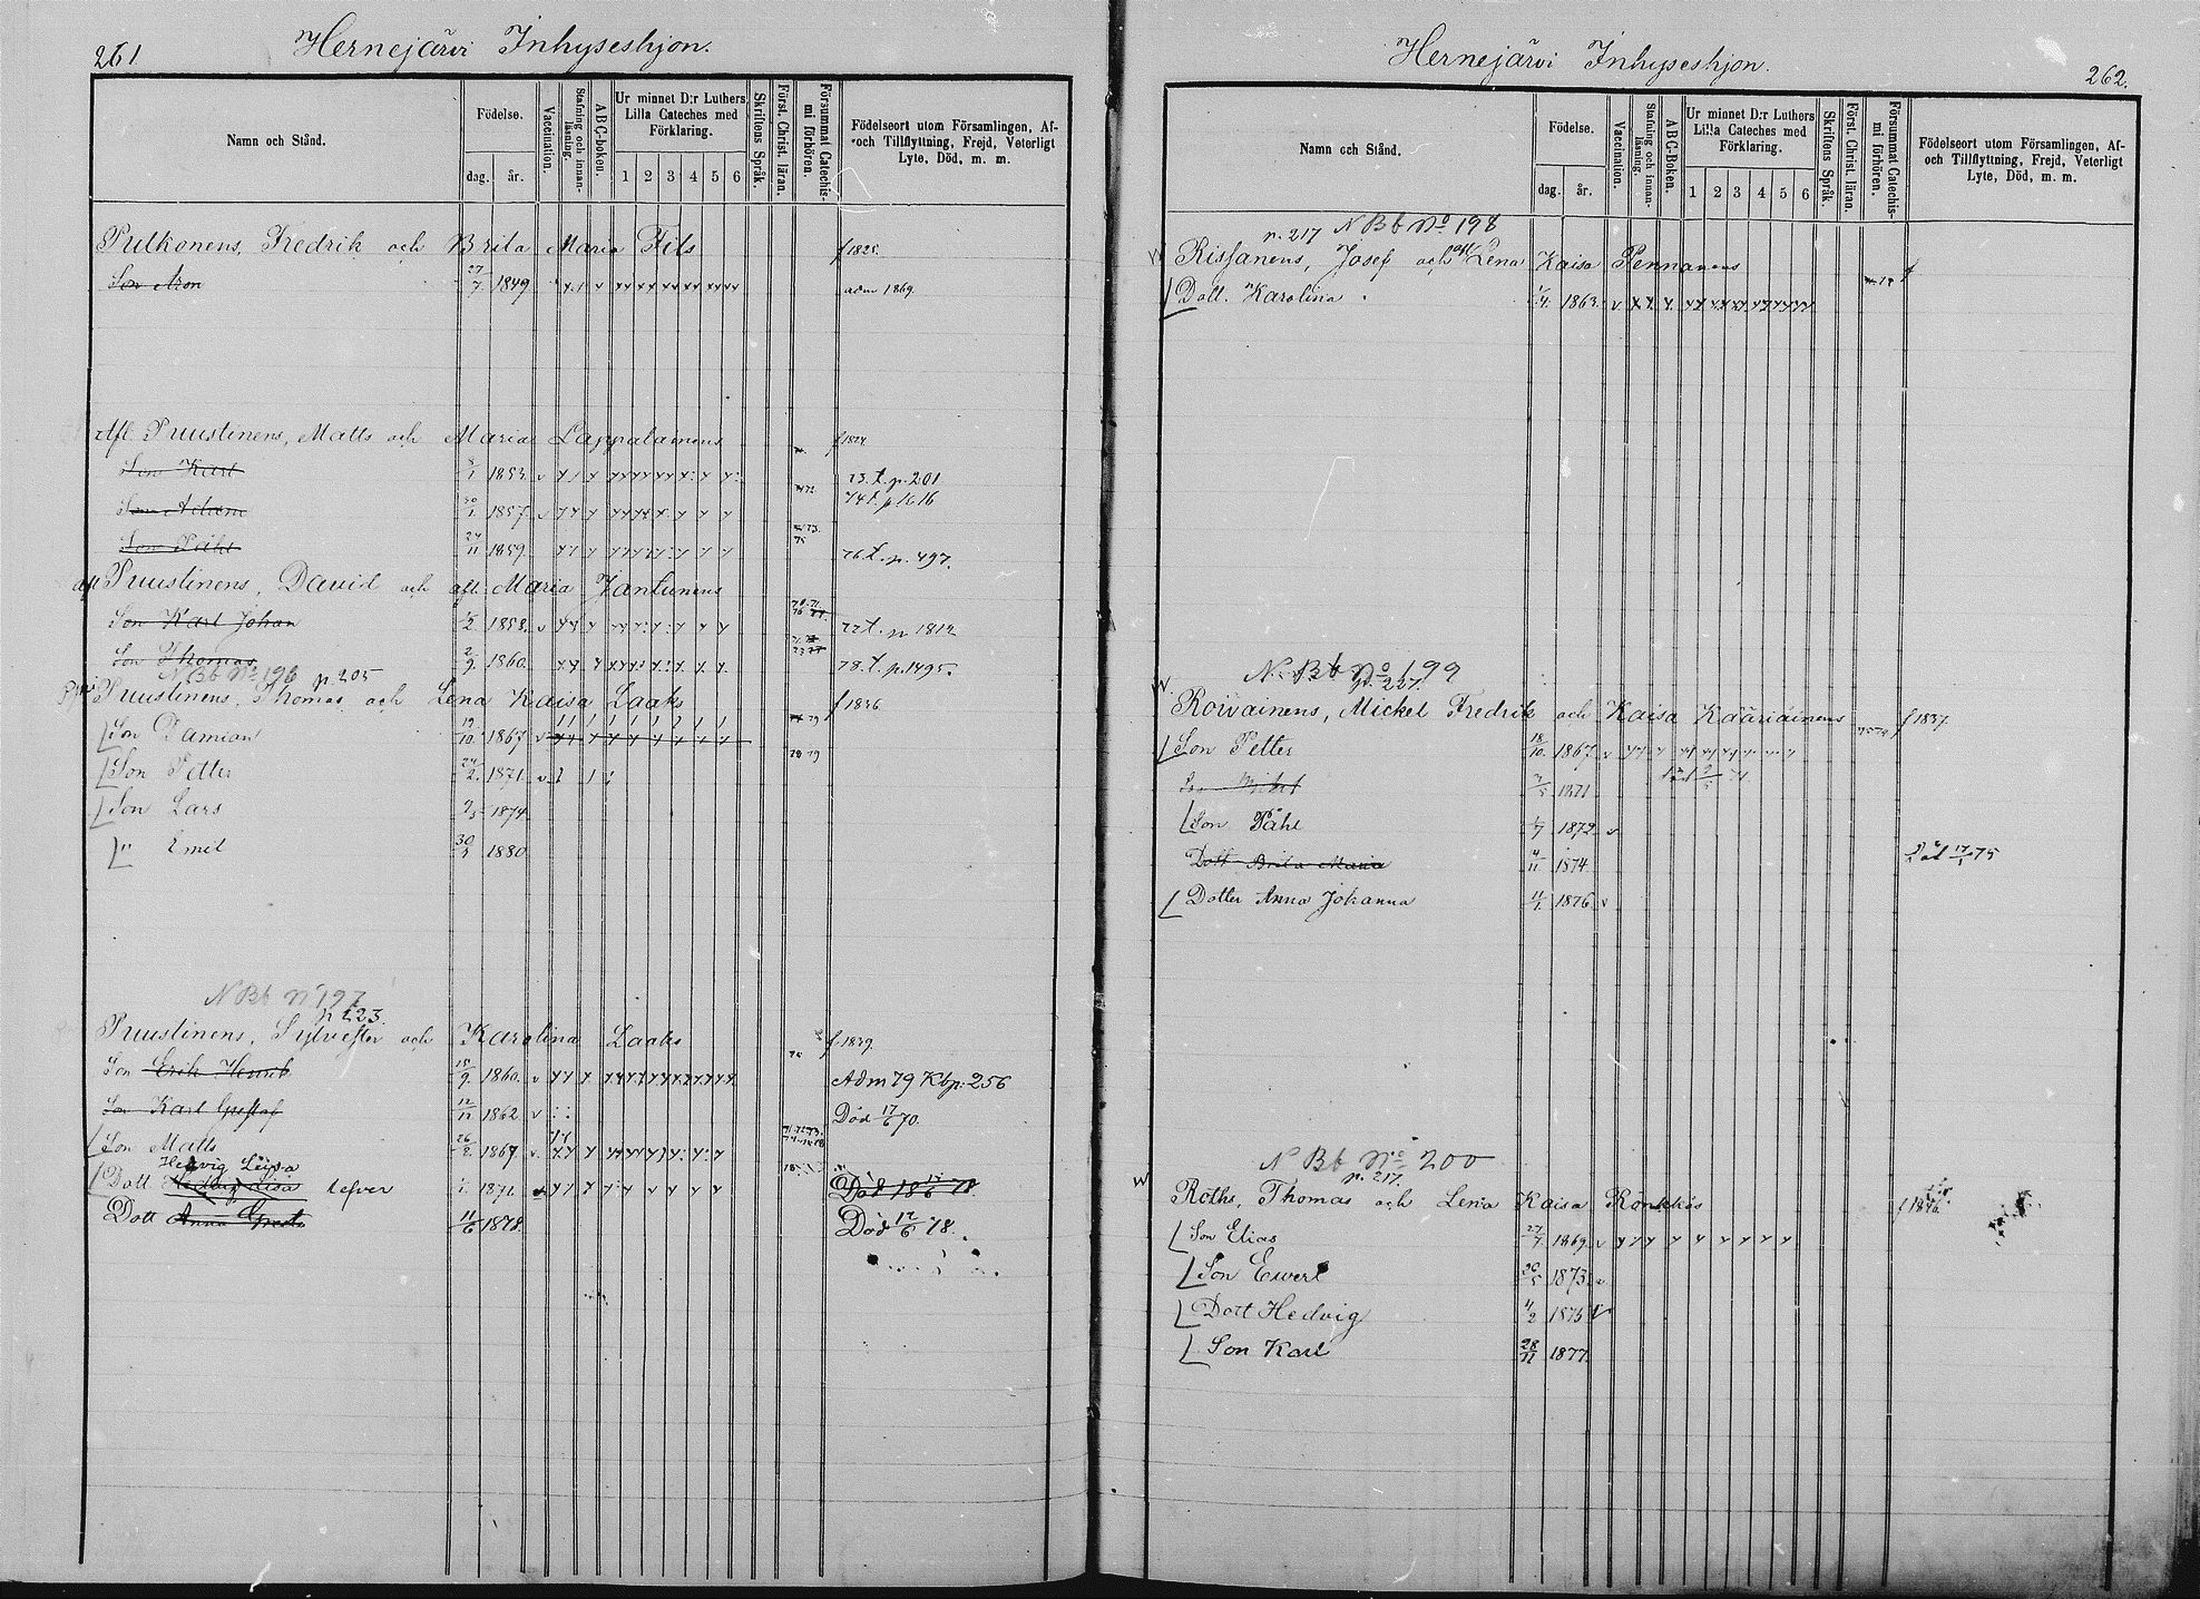 261
Hernejärvi Inhyseshjon.
Namn och Stånd.
Födelse.
dag. år.
Vaccination.
Stafning och innan-läsning.
ABC-boken.
Ur minnet D:r Luthers Lilla Cateches med Förklaring.
1 2 3 4 5 6
Skriftens Språk.
Först. Christ. läran.
Försummat Catechis-mi förhören.
Födelseort utom Församlingen, Af- och Tillflyttning, Frejd, Veterligt Lyte, Död, m. m.
Pulkonens, Fredrik och Brita Maria Fils f 1825.
Son Aron 27/7 1849 adm 1869.
Afl. Puustinens, Matts och Maria Lappalainens f 1824
Son Karl 1853 73. t. p. 201
Son Adam 30/1 1857. 74 t. p. 1616
Son Påhl 24/11 1859. 76 t. p. 497.
afl Puustinens, David och afl. Maria Jantunens
Son Karl Johan 1858. 77 t. p. 1812
Son Thomas 2/9. 1860. 78. t. p. 1495.
N Bb No 196 p. 205
Puustinens, Thomas och Lena Kaisa Laaks f 1836
Son Damian 19/10. 1867 79
Son Petter 24/2. 1871. 78 79
Son Lars 1874
" Emil 30/3 1880
N Bb No 197
p 223.
Puustinens, Sylvester och Karolina Laaks f. 1839.
Son Erik Henrik 18/9. 1860. Adm 79 Kbp: 256
Son Karl Gustaf 12/12 1862 Död 17/6 70.
Son Matts 26/2. 1867
Hedvig Lisa
Dott Hedvig Lisa lefver 1872 Död 18 17/6 78.
Dott Anna Greta 11/6 1878. Död 17/6 78.
Hernejärvi Inhyseshjon.
262.
Namn och Stånd.
Födelse.
dag. år.
Vaccination.
Stafning och innan-läsning.
ABC-Boken.
Ur minnet D:r Luthers Lilla Cateches med Förklaring.
1 2 3 4 5 6
Skriftens Språk.
Först. Christ. läran.
Försummat Catechis-mi förhören.
Födelseort utom Församlingen, Af- och Tillflyttning, Frejd, Veterligt Lyte, Död, m. m.
p. 217 N Bb No 198
Rissanens, Josef och afl Lena Kaisa Pennanens
Dott. Karolina 1/4. 1863.
N. Bb No 199
p. 227.
Roivainens, Mickel Fredrik och Kaisa Kääriäinens f 1837.
Son Petter 18/10. 1867.
Son Mikel 1871
Son Påhl 1/7 1872
Dott Brita Maria 4/11 1874. Död 17/1 75
Dotter Anna Johanna 1876
N Bb No 200
p. 217.
W Roths, Thomas och Lena Kaisa Rönkkös f 1846.
Son Elias 27/7. 1869.
Son Ewert 30/5 1873
Dott Hedvig 4/2 1875
Son Karl 28/11 1877.